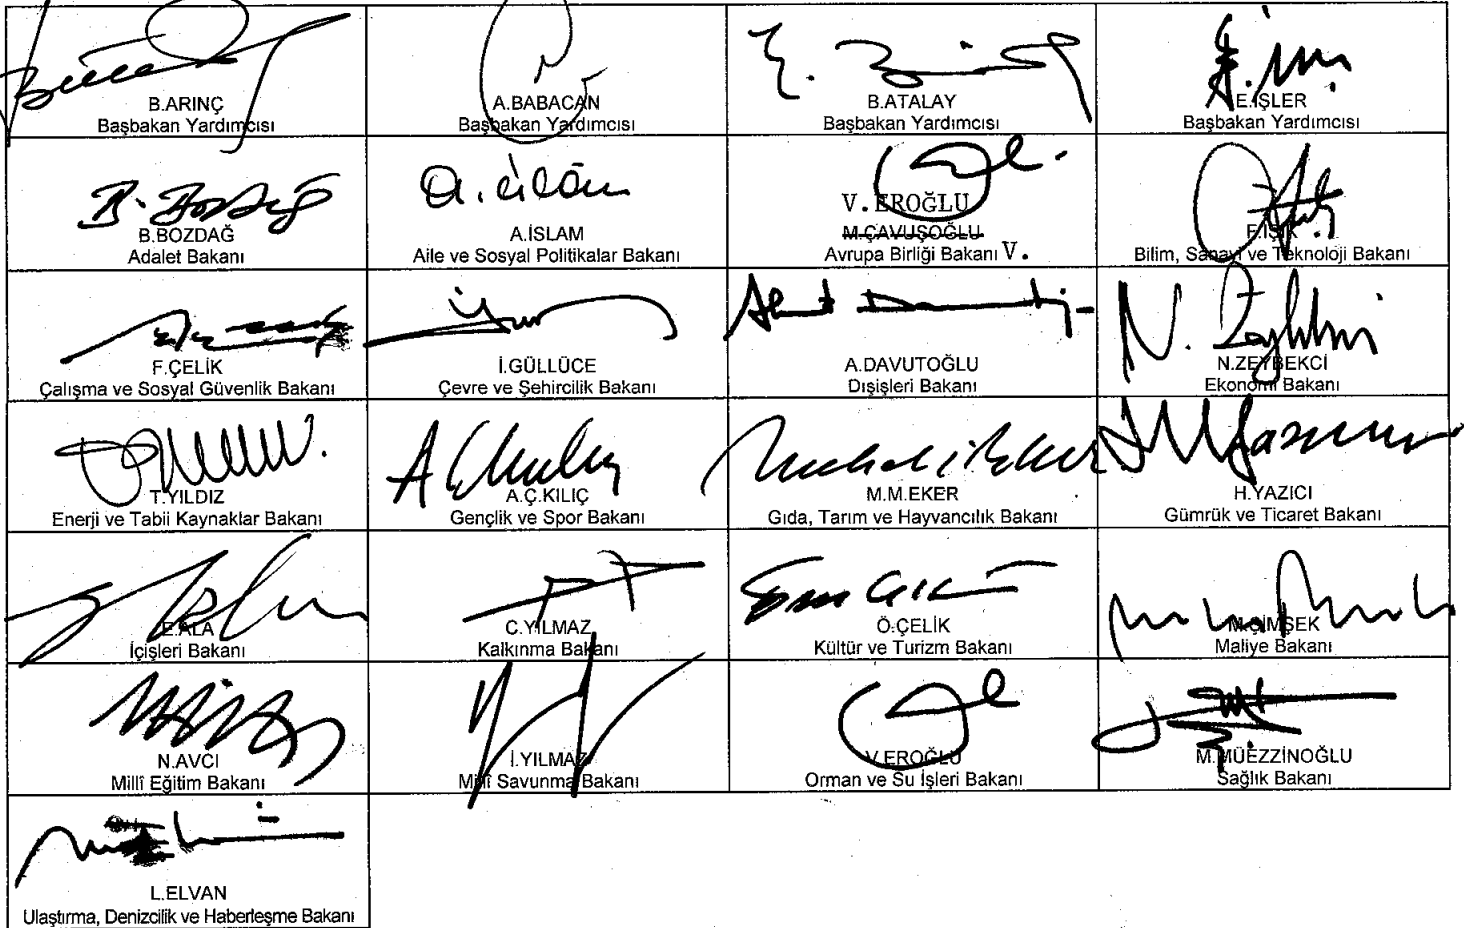 B.ARINÇ
Başbakan Yardımcısı
A.BABACAN
Başbakan Yardımcısı
B.ATALAY
Başbakan Yardımcısı
E.İŞLER
Başbakan Yardımcısı
B.BOZDAĞ
Adalet Bakanı
A.İSLAM
Aile ve Sosyal Politikalar Bakanı
V.EROĞLU
M.ÇAVUŞOĞLU
Avrupa Birliği Bakanı V.
F.IŞIK
Bilim, Sanayi ve Teknoloji Bakanı
F.ÇELİK
Çalışma ve Sosyal Güvenlik Bakanı
İ.GÜLLÜCE
Çevre ve Şehircilik Bakanı
A.DAVUTOĞLU
Dışişleri Bakanı
N.ZEYBEKCİ
Ekonomi Bakanı
T.YILDIZ
Enerji ve Tabii Kaynaklar Bakanı
A.Ç.KILIÇ
Gençlik ve Spor Bakanı
M.M.EKER
Gıda, Tarım ve Hayvancılık Bakanı
H.YAZICI
Gümrük ve Ticaret Bakanı
E.ALA
İçişleri Bakanı
C.YILMAZ
Kalkınma Bakanı
Ö.ÇELİK
Kültür ve Turizm Bakanı
M.ŞİMŞEK
Maliye Bakanı
N.AVCI
Millî Eğitim Bakanı
İ.YILMAZ
Millî Savunma Bakanı
V.EROĞLU
Orman ve Su İşleri Bakanı
M.MÜEZZİNOĞLU
Sağlık Bakanı
L.ELVAN
Ulaştırma, Denizcilik ve Haberleşme Bakanı